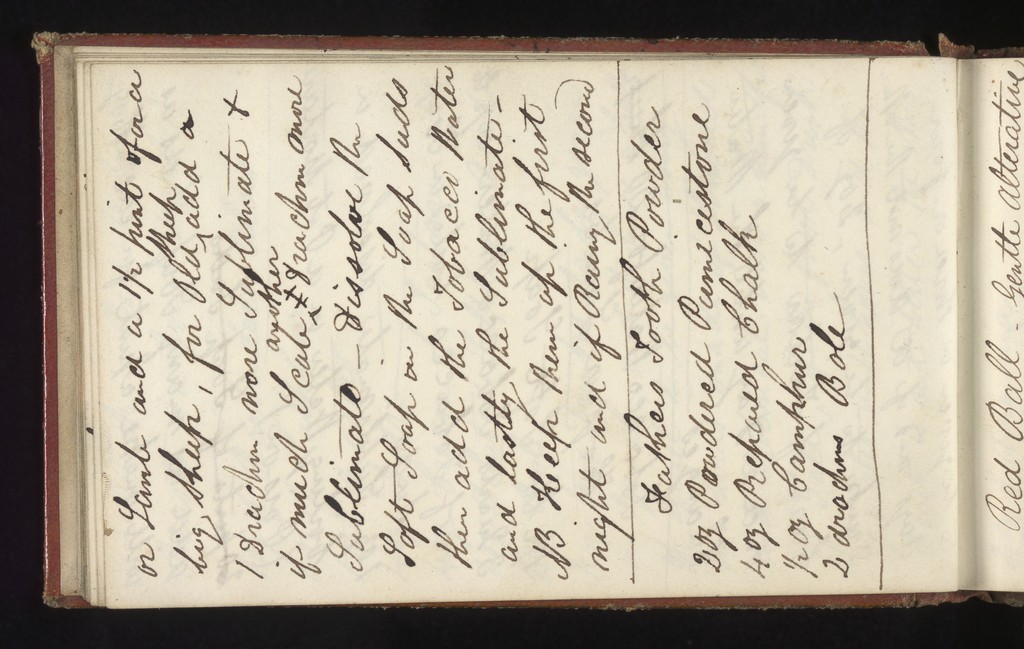 or Lamb and a 1/2 pint for a
big sheep, for Old sheep add a
1 Drachm more Sublimate &
if much Scab another Drachm more
Sublimate – Dissolve the
Soft Soap in the Soap Suds
then add the Tobacco Water
and lastly the Sublimate –
NB Keep them up the first
night and if Rainy the second
Fathers Tooth Powder
2 oz Powdered Pumicestone
4 oz Prepared Chalk
1/2 oz Camphur
2 drachms Bole
Red Ball - Gentle alterative